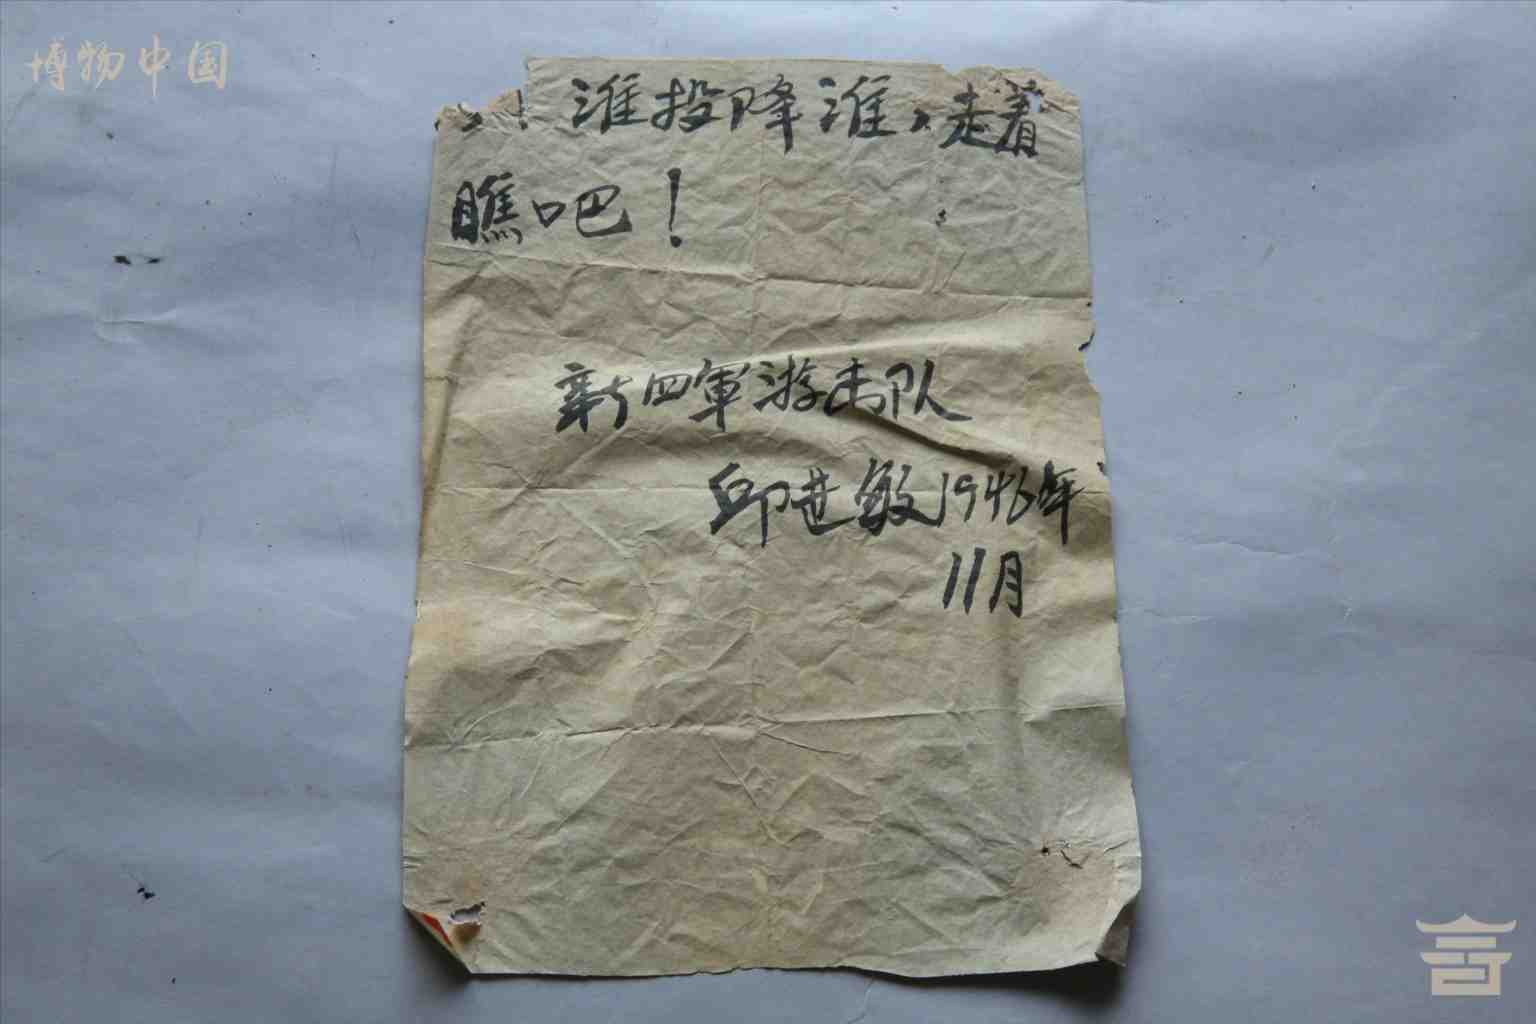 博物中国
！谁投降谁，走着
瞧吧！
新四軍游击队
邱世敏1946年
11月